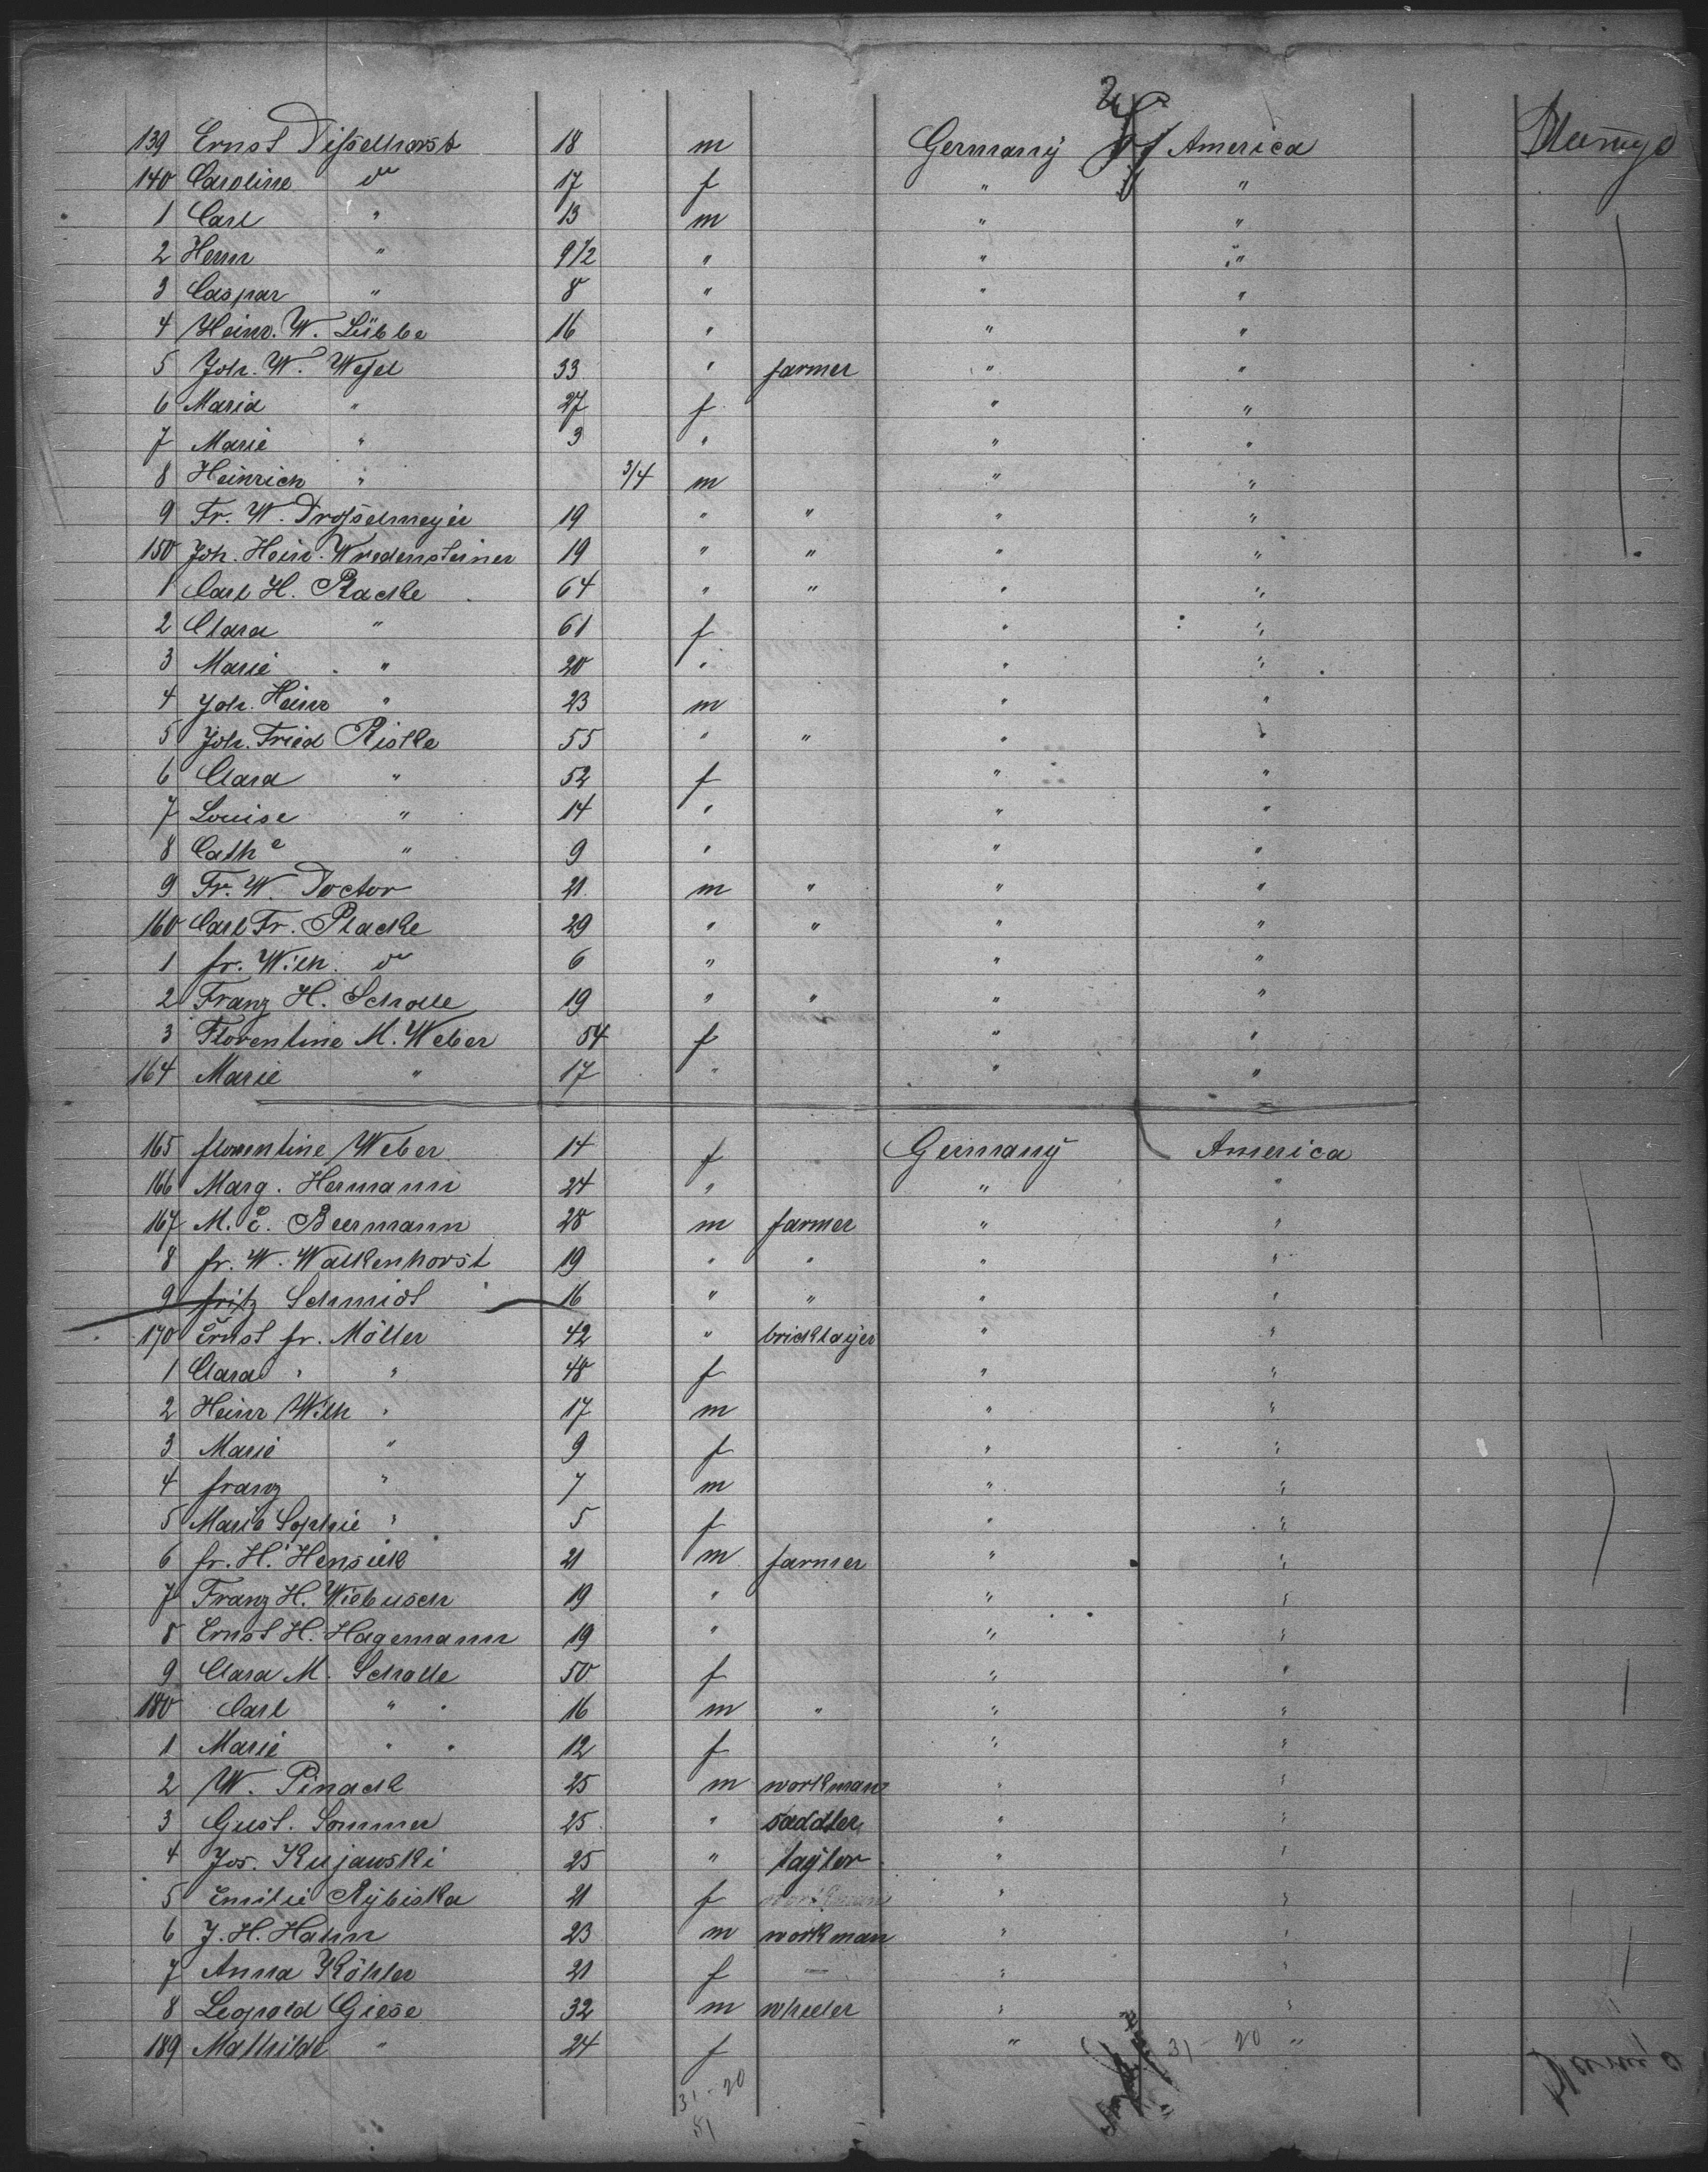 139 Ernst Disselhorst 18 m Germany America
140 Caroline do 17 f " "
1 Carl " 13 m " "
2 Herm " 9 1/2 " " "
3 Caspar " 8 " " "
4 Heinr. W. Lübbe 16 " " "
5 Joh. W. Wessel 33 " farmer " "
6 Maria " 27 f " "
7 Marie " 3 " " "
8 Heinrich " 3/4 m " "
9 Fr. W. Drosselmeyer 19 " " " "
150 Joh. Heinr. Wredensteiner 19 " " " "
1 Carl H. Racke 64 " " " "
2 Clara " 61 f " "
3 Marie " 20 " " "
4 Joh. Heinr " 23 m " "
5 Joh. Fried Ristke 55 " " " "
6 Clara " 52 f " "
7 Louise " 14 " " "
8 Cathe " 9 " " "
9 Fr. W. Doctor 21 m " " "
160 Carl Fr. Placke 29 " " " "
1 fr. Wilh. do 6 " " "
2 Franz H. Scholle 19 " " " "
3 Florentine M. Weber 54 f " "
164 Marie " 17 " " "
165 florentine Weber 14 f Germany America
166 Marg. Hermann 24 " " "
167 M. E. Beermann 28 m farmer " "
8 fr. W. Walkenhorst 19 " " " "
9 fritz Schmidt 16 " " " "
170 Ernst fr. Möller 42 " bricklayer " "
1 Clara " " 48 f " "
2 Heinr Wilh " 17 m " "
3 Marie " 9 f " "
4 franz " 7 m " "
5 Marie Sophie " 5 f " "
6 fr. H. Hensiek 21 m farmer " "
7 Franz H. Wiebusch 19 " " "
8 Ernst H. Hagemann 19 " " "
9 Clara M. Scholle 50 f " "
180 Carl " 16 m " " "
1 Marie " " 12 f " "
2 W. Pinack 25 m workman " "
3 Gust. Sommer 25 " saddler " "
4 Jos. Kujawski 25 " taylor " "
5 Emilie Rybiska 21 f workman " "
6 J. H. Hahn 23 m workman " "
7 Anna Köhler 21 f — " "
8 Leopold Giese 32 m wheeler " "
189 Mathilde " 24 f " 31-20 "
31-20
51